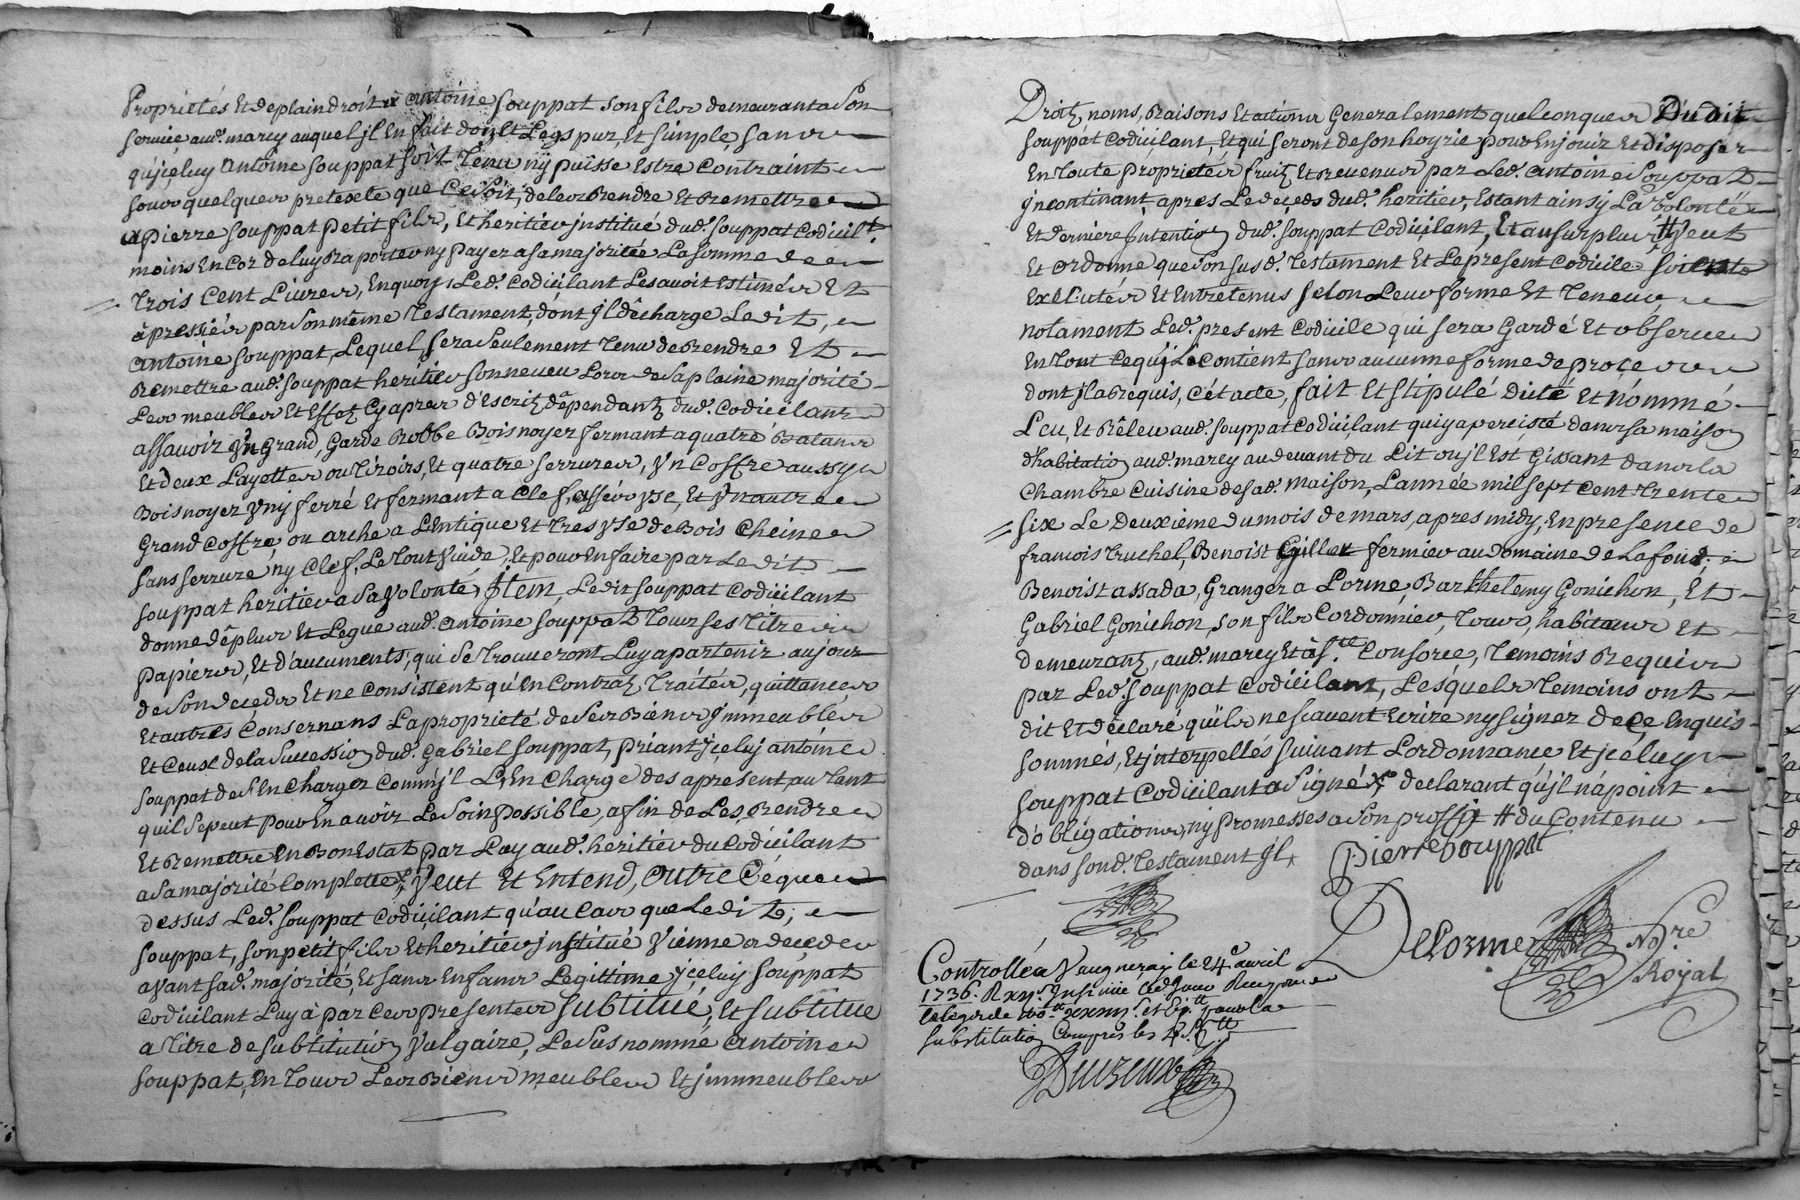 Proprietés Et de plain droit a antoine Souppat son fils demeurant a son
service aud. marcy auquel jl En fait don Et Legs pur, Et simple sans
qu'jceluy antoine Souppat soit Tenu ny puisse Estre Contraint
sous quelques pretexte que Ce soit, de les Rendre Et Remettre
a pierre Souppat petit fils, Et heritier jnstitué dud. Souppat Codicilt.
moins Encor de luy Raporter ny payer a sa majoritée La somme de
Trois Cent Livres, En quoy Led. Codicilant Les avoit Estimés Et
apressiés par son même Testament, dont jl décharge Ledit,
antoine Souppat, Lequel sera seulement Tenu de Rendre Et
Remettre aud. Souppat heritier son neveu Lors de sa plaine majorité
Les meubles Et Effetz Cy apres d'Escritz dépendantz dud. Codicilant
assavoir Vn Grand, Garde Robbe Bois noyer fermant a quatre Batans
Et deux Layettes ou Tiroirs, Et quatre serrures, Vn Coffre aussy
Bois noyer Vny ferré Et fermant a Clef, assés Vsé, Et Vn autre
Grand Coffre ou arche a L'Entique Et Tres Vsé de Bois Cheine
sans serrure ny Clef, Le Tout Vuide, Et pour En faire par Ledit
Souppat heritier a sa Volonté, jtem, Ledit Souppat Codicilant
donne dêplus Et Legue aud. antoine Souppat Tous ses Titres
papiers, Et d'aucuments, qui se Trouveront Luy apartenir au jour
de son deçeds Et ne Consistent qu'En Contratz, Traités, quittances
Et autres Consernans La proprieté de ses Biens jmmeubles
Et Ceux de la Succession dud. Gabriel Souppat, priant jceluy antoine
Souppat de s'En Charger Comm'jl L'En Charge des apresent, autant
qu'il se peut pour En avoir Le soin possible, afin de Les, Rendre
Et Remettre En Bon Estat par Luy aud. heritier du Codicilant
a sa majorité Complette, Veut Et Entend, outre Ce que
dessus Led. Souppat Codicilant qu'au Cas que Ledit,
Souppat, son petit fils Et heritier jnstitué Vienne a deceder
avant sad. majorité, Et sans Enfans Legittime jceluy Souppat
Codicilant Luy a par Ces presentes Subtitué, Et subtitue
a Titre de subtitution Vulgaire, Le Susnommé antoine
Souppat, En Tous Les Biens meubles Et jmmeubles
Droitz, noms, Raisons Et actions Generalement quelconques Dudit
Souppat Codicilant, Et qui seront de son hoyrie pour En jouir Et disposer
En Toute proprietés fruitz Et Revenus par Led. antoine Souppat
jncontinant, apres Le deçeds dud. heritier, Estant ainsy La Volonté
Et derniere jntention dud. Souppat Codicilant, Et au surplus # Veut
Et ordonne que son susd. Testament Et Le present Codicile soient
Exécutés Et Entretenus selon Leur forme Et Teneur
notament Led. present Codicile qui sera Gardé Et observé
En Tout Ce qu'jl Contient sans aucunne forme de proçes
dont jl a Requis, C'ét acte, fait Et stipulé dicté Et nommé
Leu, Et Rêleu aud. Souppat Codicilant qui y a percisté dans sa maison
d'habitation aud. marcy au devant du Lit ou jl Est Gissant dans la
Chambre Cuisine de sad. maison, L'année mil sept cent Trente
six Le Deuxième du mois de mars, apres midy, En presence de
francois Truchet, Benoist Gillet fermier au Domaine de La fond
Benoist assada, Granger a Lorme, Barthelemy Gonichon, Et
Gabriel Gonichon, son fils Cordonnier, Tous, habitans Et
demeurantz, aud. marcy Et a Ste. Consorce, Temoins Requis
par Led. Souppat Codicilant, Lesquels Temoins ont
dit Et déclaré qu'ils ne scavent Ecrire ny signer de çe Enquis
sommés, Et jnterpellés suivant L'ordonnance, Et jceluy
Souppat Codicilant a signé declarant qu'jl n'a point
d'obligations, ny promesses a son proffit # du Contenu
dans sond. Testament jl
pierre Souppat
Delorme Nore. Royal
Controllé a Vaugneray le 24e. avril
1736. R
substitution Compris les 4 s.